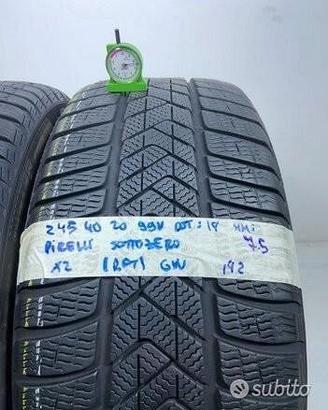 245 40 20 99V DOT: 18 MM:
7.5
PIRELLI SOTTOZERO
X2 (RFT) GW 192
subito